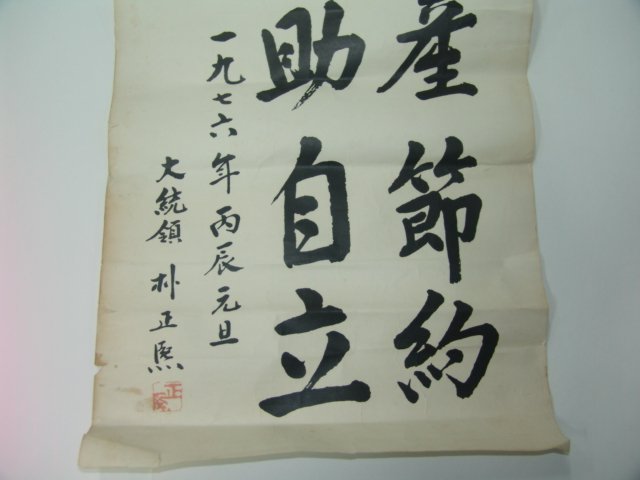 產節約
助自立
一九七六年 丙辰元旦
大統領 朴正熙
正熙